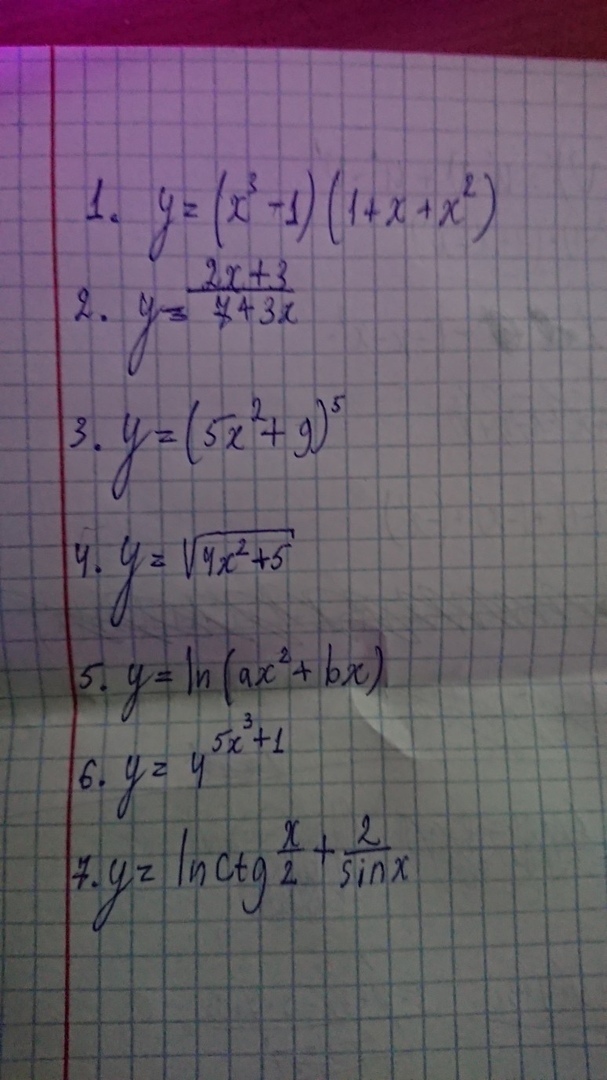 1. y = (x³ - 1)(1 + x + x²)
2. y = \frac{2x+3}{7+3x}
3. y = (5x² + 9)⁵
4. y = √(4x² + 5)
5. y = ln(ax² + bx)
6. y = 4^{5x³+1}
7. y = ln ctg \frac{x}{2} + \frac{2}{sin x}